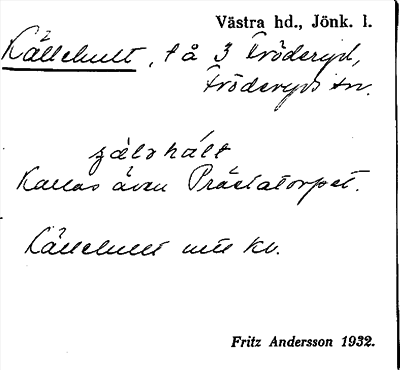 Västra hd., Jönk. l.
Källehult, t å 3 Fröderyd,
Fröderyds sn.
Kallas även Prästatorpet.
Källehult utt kv.
Fritz Andersson 1932.